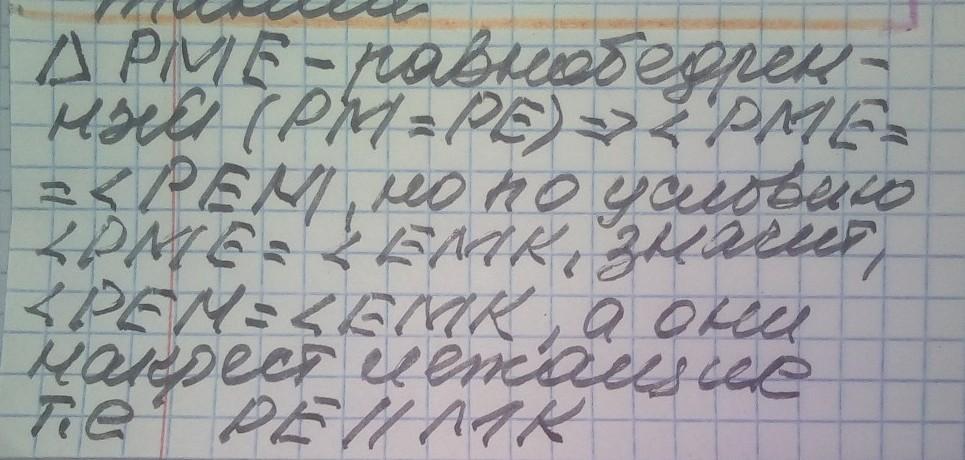 △ PME - равнобедрен-
ный (PM = PE) => < PME =
= < PEM, но по условию
< PME = < EMK, значит,
< PEM = < EMK, а они
накрест лежащие
т.е PE || MK